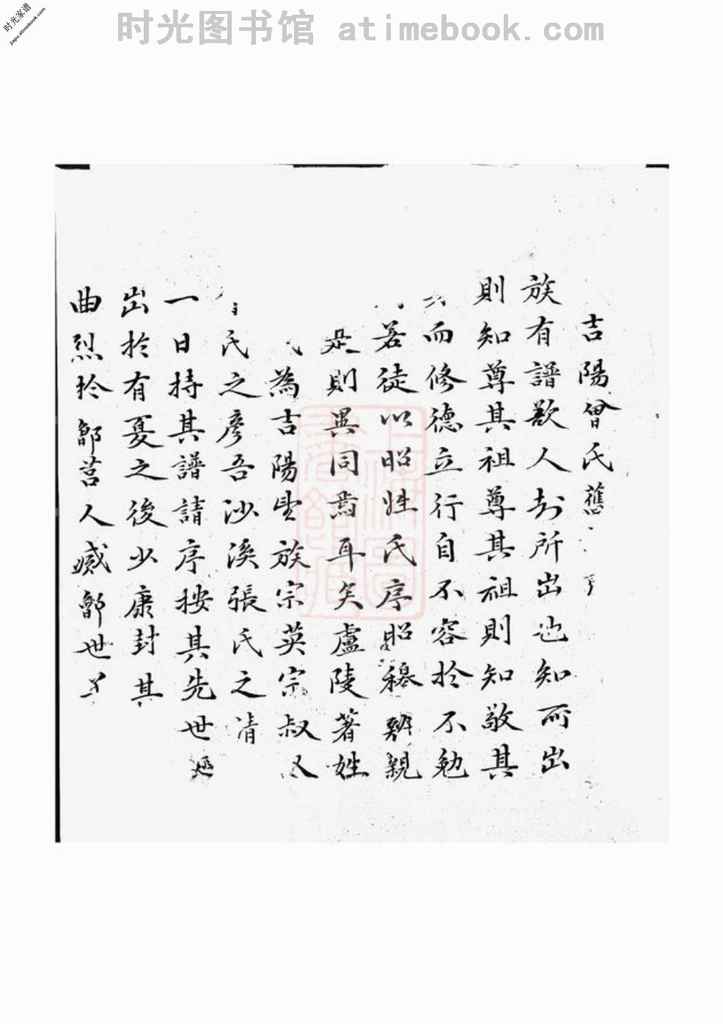 时光图书馆 atimebook.com
时光家谱
jiapu.atimebook.com
吉陽曾氏舊
族有譜欲人知所出也知所出
則知尊其祖尊其祖則知敬其
而修德立行自不容於不勉
若徒以昭姓氏序昭穆辨親
是則異同焉耳矣盧陵著姓
為吉陽望族宗英宗叔又
氏之彥吾沙溪張氏之清
一日持其譜請序按其先世
出於有夏之後少康封其
曲烈於鄫莒人滅鄫世